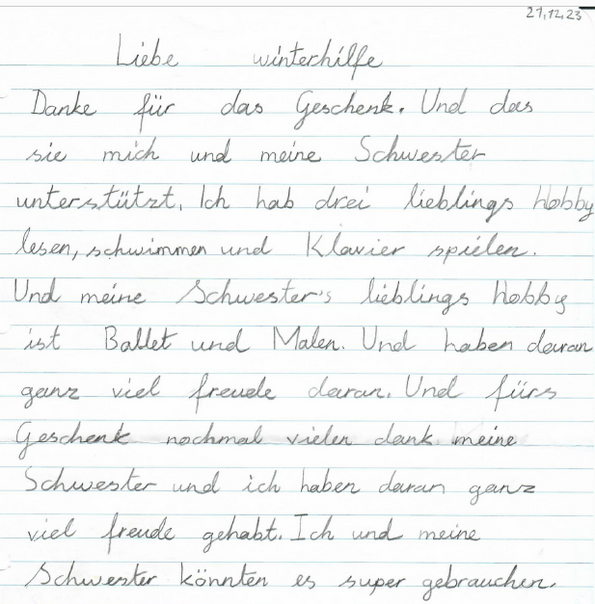 21.12.23
Liebe winterhilfe
Danke für das Geschenk. Und das
sie mich und meine Schwester
unterstützt. Ich hab drei lieblings Hobby
lesen, schwimmen und Klavier spielen.
Und meine Schwester's lieblings Hobby
ist Ballet und Malen. Und haben daran
ganz viel freude daran. Und fürs
Geschenk nochmal vielen dank meine
Schwester und ich haben daran ganz
viel freude gehabt. Ich und meine
Schwester könnten es super gebrauchen.